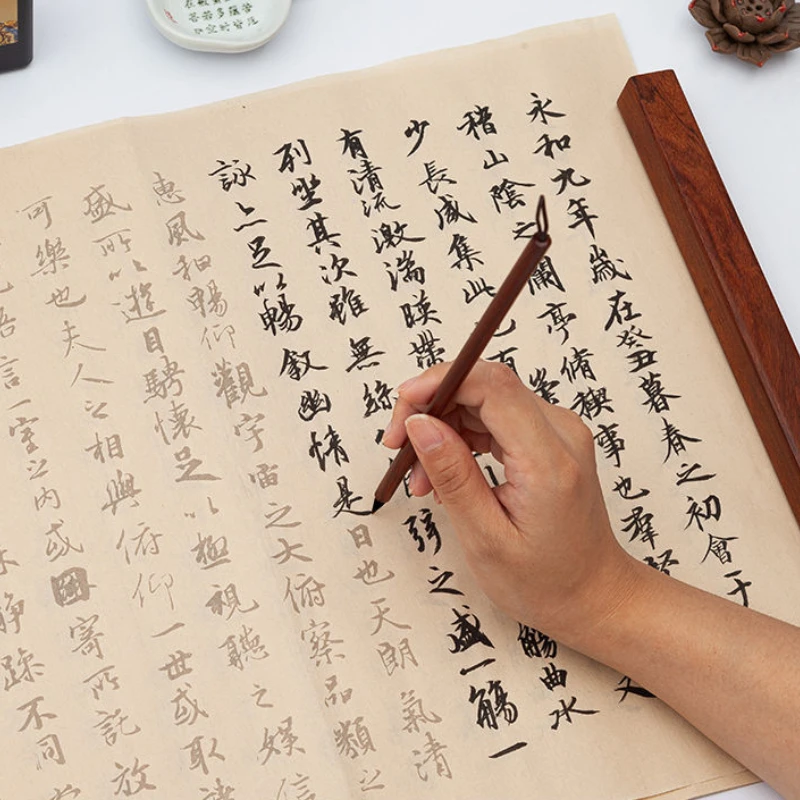 永和九年歲在癸丑暮春之初會于
稽山陰之蘭亭脩禊事也羣賢
少長咸集此地有崇山又
有清流激湍暎帶觴曲水
列坐其次雖無絲弦之盛一觴一
詠亦足以暢敘幽情是日也天朗氣清
惠風和暢仰觀宇宙之大俯察品類之
盛所以遊目騁懷足以極視聽之娛信
可樂也夫人之相與俯仰一世或取諸
悟言一室之內或因寄所託放
靜躁不同